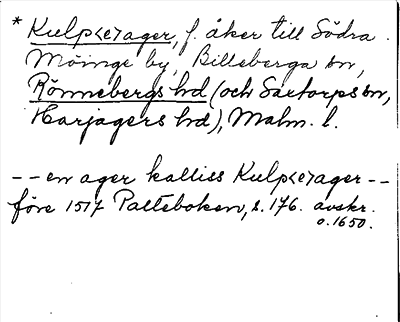 * Kulp<e>ager, f. åker till Södra
Möinge by, Billeberga sn,
Rönnebergs hd (och Saxtorps sn,
Harjagers hd), Malm. l.
-- en ager kalliss Kulp<e>ager --
före 1517 Palteboken, s. 176. avskr.
o. 1650.